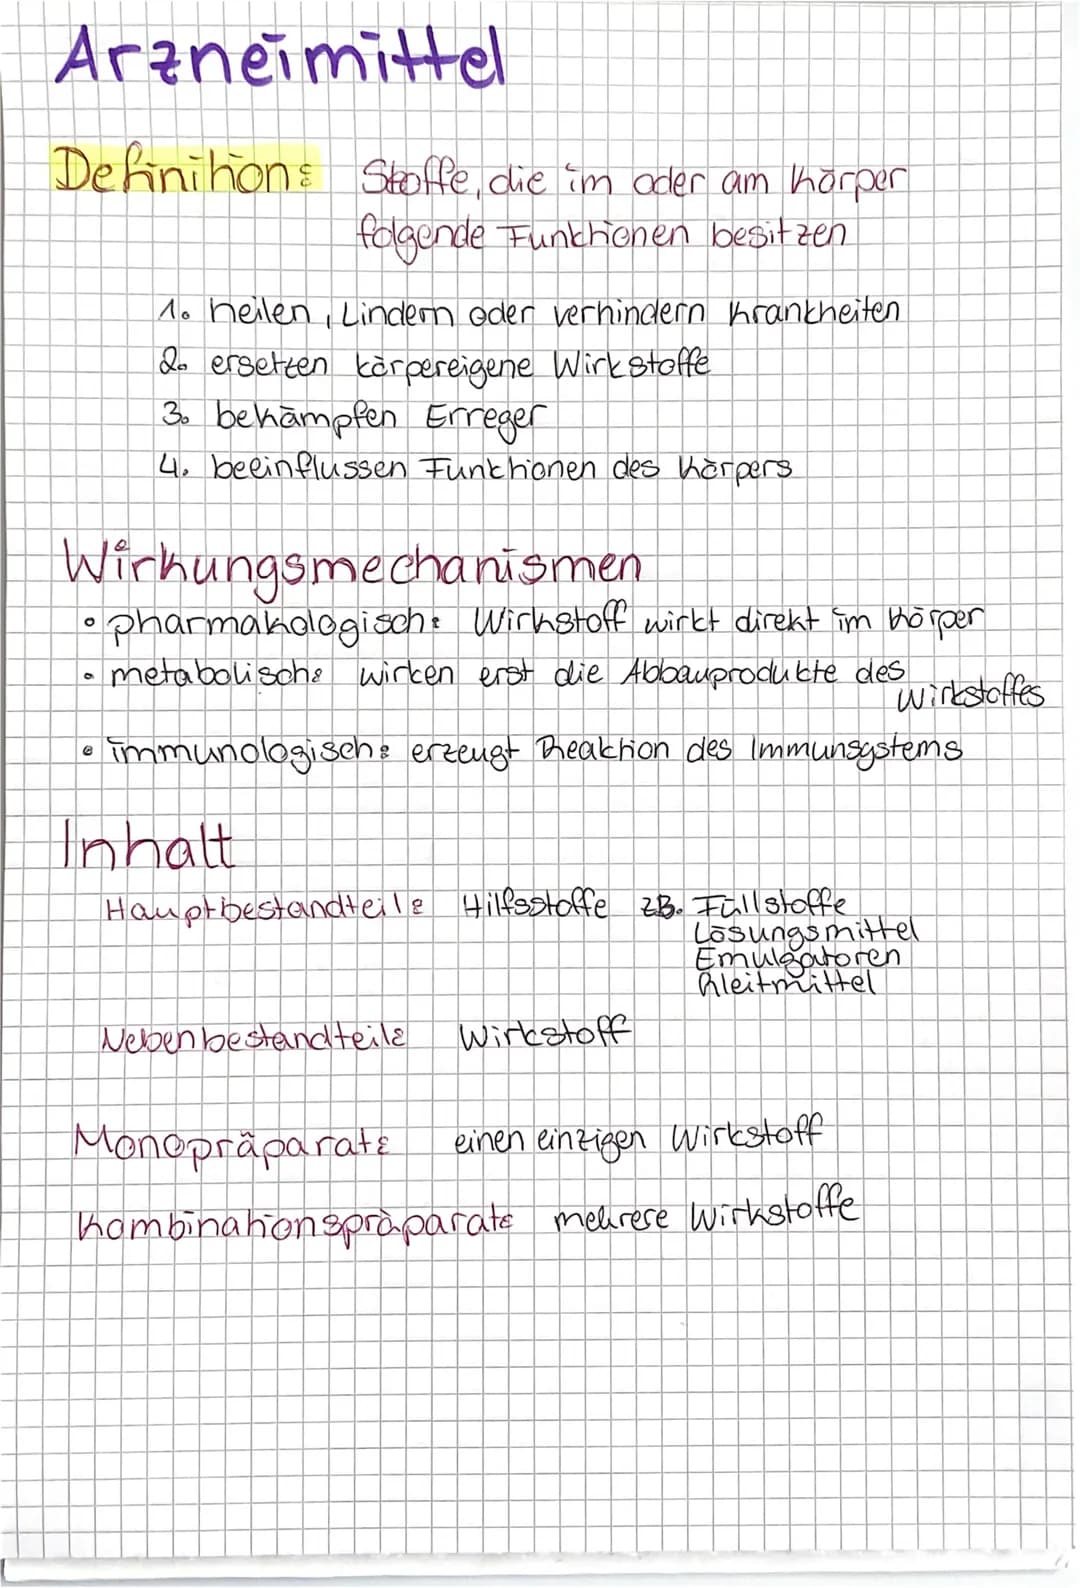 Arzneimittel
Definition: Stoffe, die im oder am Körper
folgende Funktionen besitzen
1. heilen, Lindern oder verhindern Krankheiten
2. ersetzen körpereigene Wirkstoffe
3. bekämpfen Erreger
4. beeinflussen Funktionen des Körpers
Wirkungsmechanismen
• pharmakologisch: Wirkstoff wirkt direkt im Körper
• metabolisch: wirken erst die Abbauprodukte des
Wirkstoffes
• immunologisch: erzeugt Reaktion des Immunsystems
Inhalt
Hauptbestandteile Hilfsstoffe zB. Füllstoffe
Lösungsmittel
Emulgatoren
Gleitmittel
Nebenbestandteile Wirkstoff
Monopräparate einen einzigen Wirkstoff
Kombinationspräparate mehrere Wirkstoffe